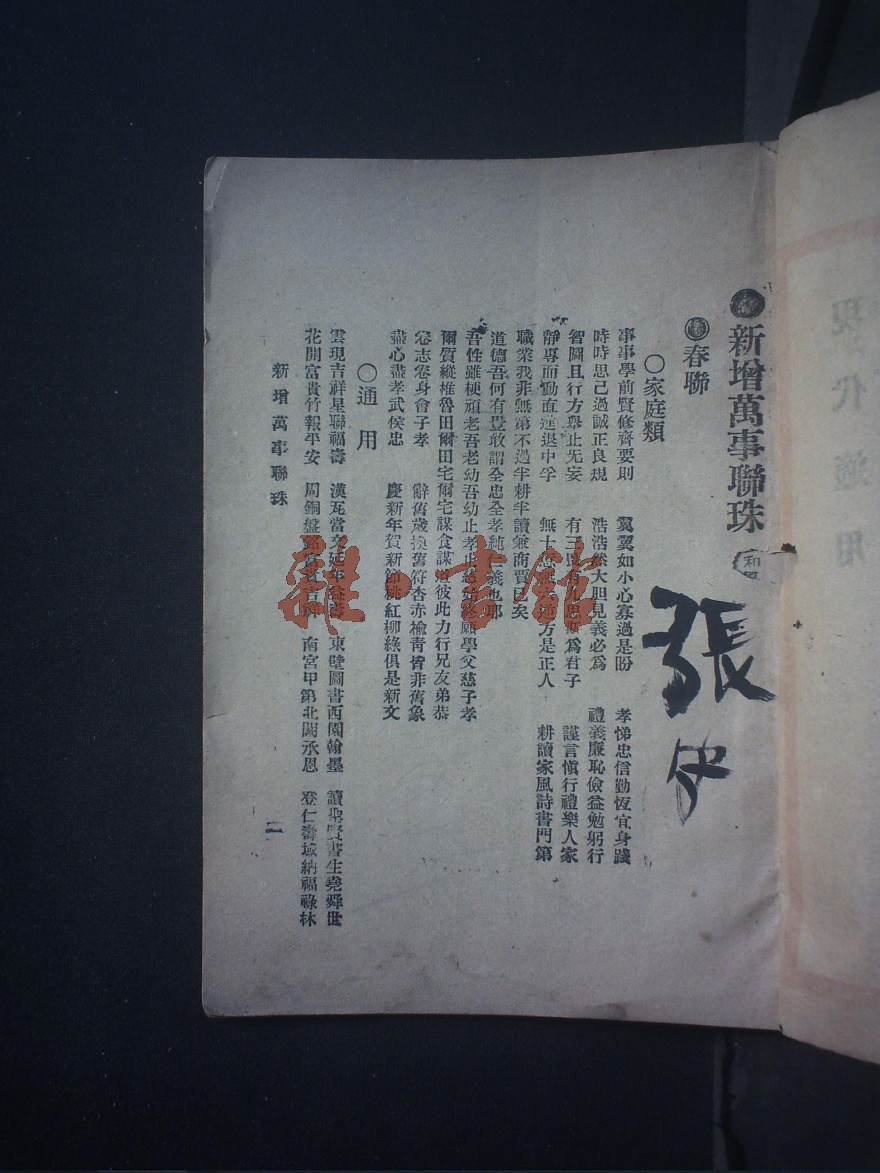 新增萬事聯珠
張
春聯
○家庭類
事事學前賢修齊要則　翼翼如小心寡過是盼　孝悌忠信勤恆宜身踐
時時思己過誠正良規　浩浩然大胆見義必為　禮義廉恥儉益勉躬行
智圓且行方舉止无妄　有三　為君子　謹言愼行禮樂人家
靜專而動直進退中孚　無十　方是正人　耕讀家風詩書門第
職業我非無第不過半耕半讀兼商賈已矣
道德吾何有豈敢謂全忠全孝純仁義也耶
吾性雖梗頑老吾老幼吾幼止孝止慈始終願學父慈子孝
爾質縱椎魯田爾田宅爾宅謀食謀道彼此力行兄友弟恭
卷志卷身會子孝　辭舊歲換舊符杏赤榆青皆非舊象
盡心盡孝武侯忠　慶新年賀新節桃紅柳綠俱是新文
○通用
雲現吉祥星聯福壽　漢瓦當文延年益壽　東壁圖書西園翰墨　讀聖賢書生堯舜世
花開富貴竹報平安　周銅盤銘富貴吉祥　南宮甲第北闕承恩　登仁壽域納福祿林
新增萬事聯珠
二
現代適用
雅·書館